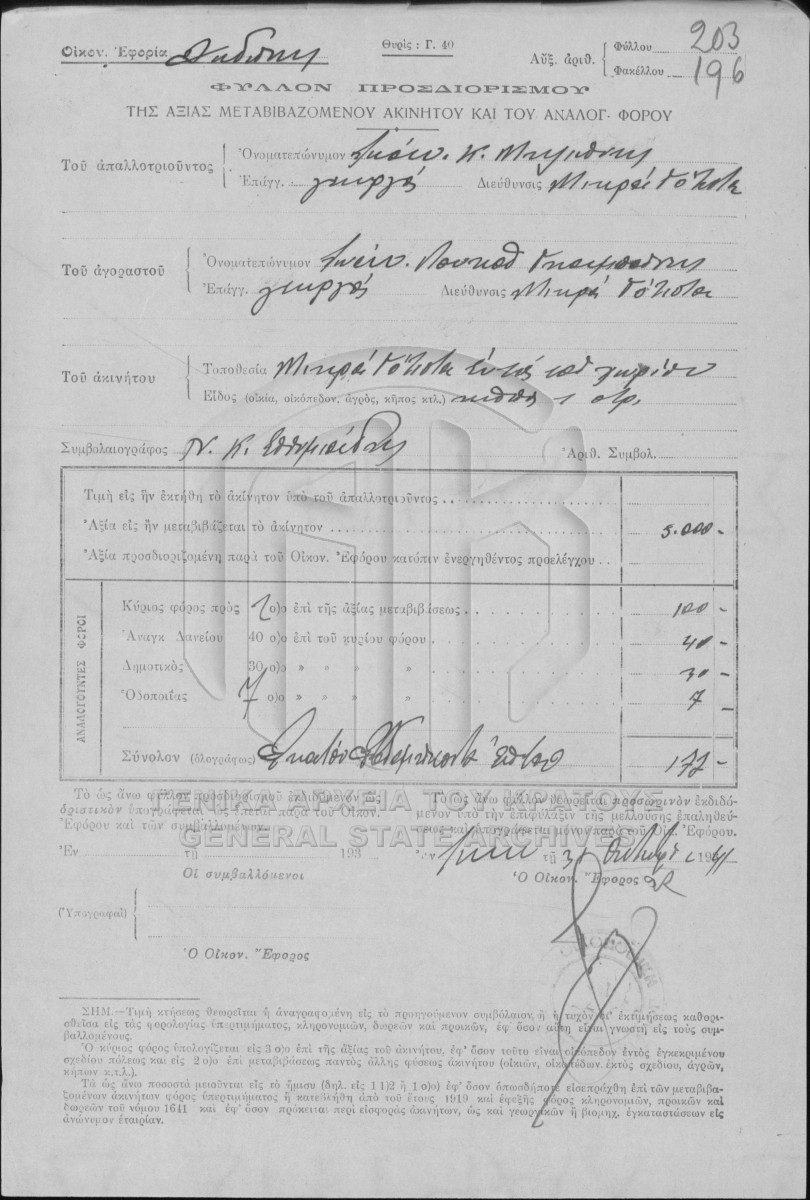 Οἰκον. Ἐφορία
Θυρὶς : Γ. 40
Αὔξ. ἀριθ. Φύλλου 203
Φακέλλου 196
ΦΥΛΛΟΝ ΠΡΟΣΔΙΟΡΙΣΜΟΥ
ΤΗΣ ΑΞΙΑΣ ΜΕΤΑΒΙΒΑΖΟΜΕΝΟΥ ΑΚΙΝΗΤΟΥ ΚΑΙ ΤΟΥ ΑΝΑΛΟΓ. ΦΟΡΟΥ
Τοῦ ἀπαλλοτριοῦντος
Ὀνοματεπώνυμον Κ.
Ἐπάγγ. γεωργός Διεύθυνσις Μικρά
Τοῦ ἀγοραστοῦ
Ὀνοματεπώνυμον
Ἐπάγγ. γεωργός Διεύθυνσις Μικρά
Τοῦ ἀκινήτου
Τοποθεσία Μικρά ἐντός τοῦ χωρίου
Εἶδος (οἰκία, οἰκόπεδον. ἀγρός, κῆπος κτλ.) κῆπος 1 στρ.
Συμβολαιογράφος Ν. Κ. Ἀριθ. Συμβολ.
Τιμὴ εἰς ἣν ἐκτήθη τὸ ἀκίνητον ὑπὸ τοῦ ἀπαλλοτριοῦντος
Ἀξία εἰς ἣν μεταβιβάζεται τὸ ἀκίνητον 5.000 -
Ἀξία προσδιοριζομένη παρὰ τοῦ Οἰκον. Ἐφόρου κατόπιν ἐνεργηθέντος προελέγχου
ΑΝΑΛΟΓΟΥΝΤΕΣ ΦΟΡΟΙ
Κύριος φόρος πρὸς 2 ο)ο ἐπὶ τῆς ἀξίας μεταβιβάσεως 100 -
Ἀναγκ Δανείου 40 ο)ο ἐπὶ τοῦ κυρίου φόρου 40 -
Δημοτικὸς 30 ο)ο » » » 30 -
Ὁδοποιΐας 7 ο)ο » » » 7 -
Σύνολον (ὁλογράφως) Ἑκατόν Ἑβδομήκοντα Ἑπτά 177 -
Τὸ ὡς ἄνω φύλλον προσδιορισμοῦ ἐκδιδόμενον
ὁριστικὸν ὑπογράφεται ὡς ἕπεται παρὰ τοῦ Οἰκον.
Ἐφόρου καὶ τῶν συμβαλλομένων.
Ἐν τῇ 193
Οἱ συμβαλλόμενοι
(Ὑπογραφαὶ)
Ὁ Οἰκον. Ἔφορος
Τὸ ὡς ἄνω φύλλον θεωρεῖται προσωρινὸν ἐκδιδό-
μενον ὑπὸ τὴν ἐπιφύλαξιν τῆς μελλούσης ἐπαληθεύ-
σεως καὶ ὑπογράφεται μόνον παρὰ τοῦ Οἰκ. Ἐφόρου.
Ἐν τῇ 31 Ὀκτωβρ 1941
Ὁ Οἰκον. Ἔφορος
ΓΕΝΙΚΑ ΑΡΧΕΙΑ ΤΟΥ ΚΡΑΤΟΥΣ
GENERAL STATE ARCHIVES
ΣΗΜ.—Τιμὴ κτήσεως θεωρεῖται ἡ ἀναγραφομένη εἰς τὸ προηγούμενον συμβόλαιον, ἢ ἡ τυχὸν δι' ἐκτιμήσεως καθορι-
σθεῖσα εἰς τὰς φορολογίας ὑπερτιμήματος, κληρονομιῶν, δωρεῶν καὶ προικῶν, ἐφ' ὅσον αὕτη εἶναι γνωστὴ εἰς τοὺς συμ-
βαλλομένους.
Ὁ κύριος φόρος ὑπολογίζεται εἰς 3 ο)ο ἐπὶ τῆς ἀξίας τοῦ ἀκινήτου, ἐφ' ὅσον τοῦτο εἶναι οἰκόπεδον ἐντὸς ἐγκεκριμένου
σχεδίου πόλεως καὶ εἰς 2 ο)ο ἐπὶ μεταβιβάσεως παντὸς ἄλλης φύσεως ἀκινήτου (οἰκιῶν, οἰκοπέδων ἐκτὸς σχεδίου, ἀγρῶν,
κήπων κ.τ.λ.).
Τὰ ὡς ἄνω ποσοστὰ μειοῦνται εἰς τὸ ἥμισυ (δηλ. εἰς 1 1)2 ἢ 1 ο)ο) ἐφ' ὅσον ὁπωσδήποτε εἰσεπράχθη ἐπὶ τῶν μεταβιβα-
ζομένων ἀκινήτων φόρος ὑπερτιμήματος ἢ κατεβλήθη ἀπὸ τοῦ ἔτους 1919 καὶ ἐφεξῆς φόρος κληρονομιῶν, προικῶν καὶ
δωρεῶν τοῦ νόμου 1641 καὶ ἐφ' ὅσον πρόκειται περὶ εἰσφορᾶς ἀκινήτων, ὡς καὶ γεωργικῶν ἢ βιομηχ. ἐγκαταστάσεων εἰς
ἀνώνυμον ἑταιρίαν.